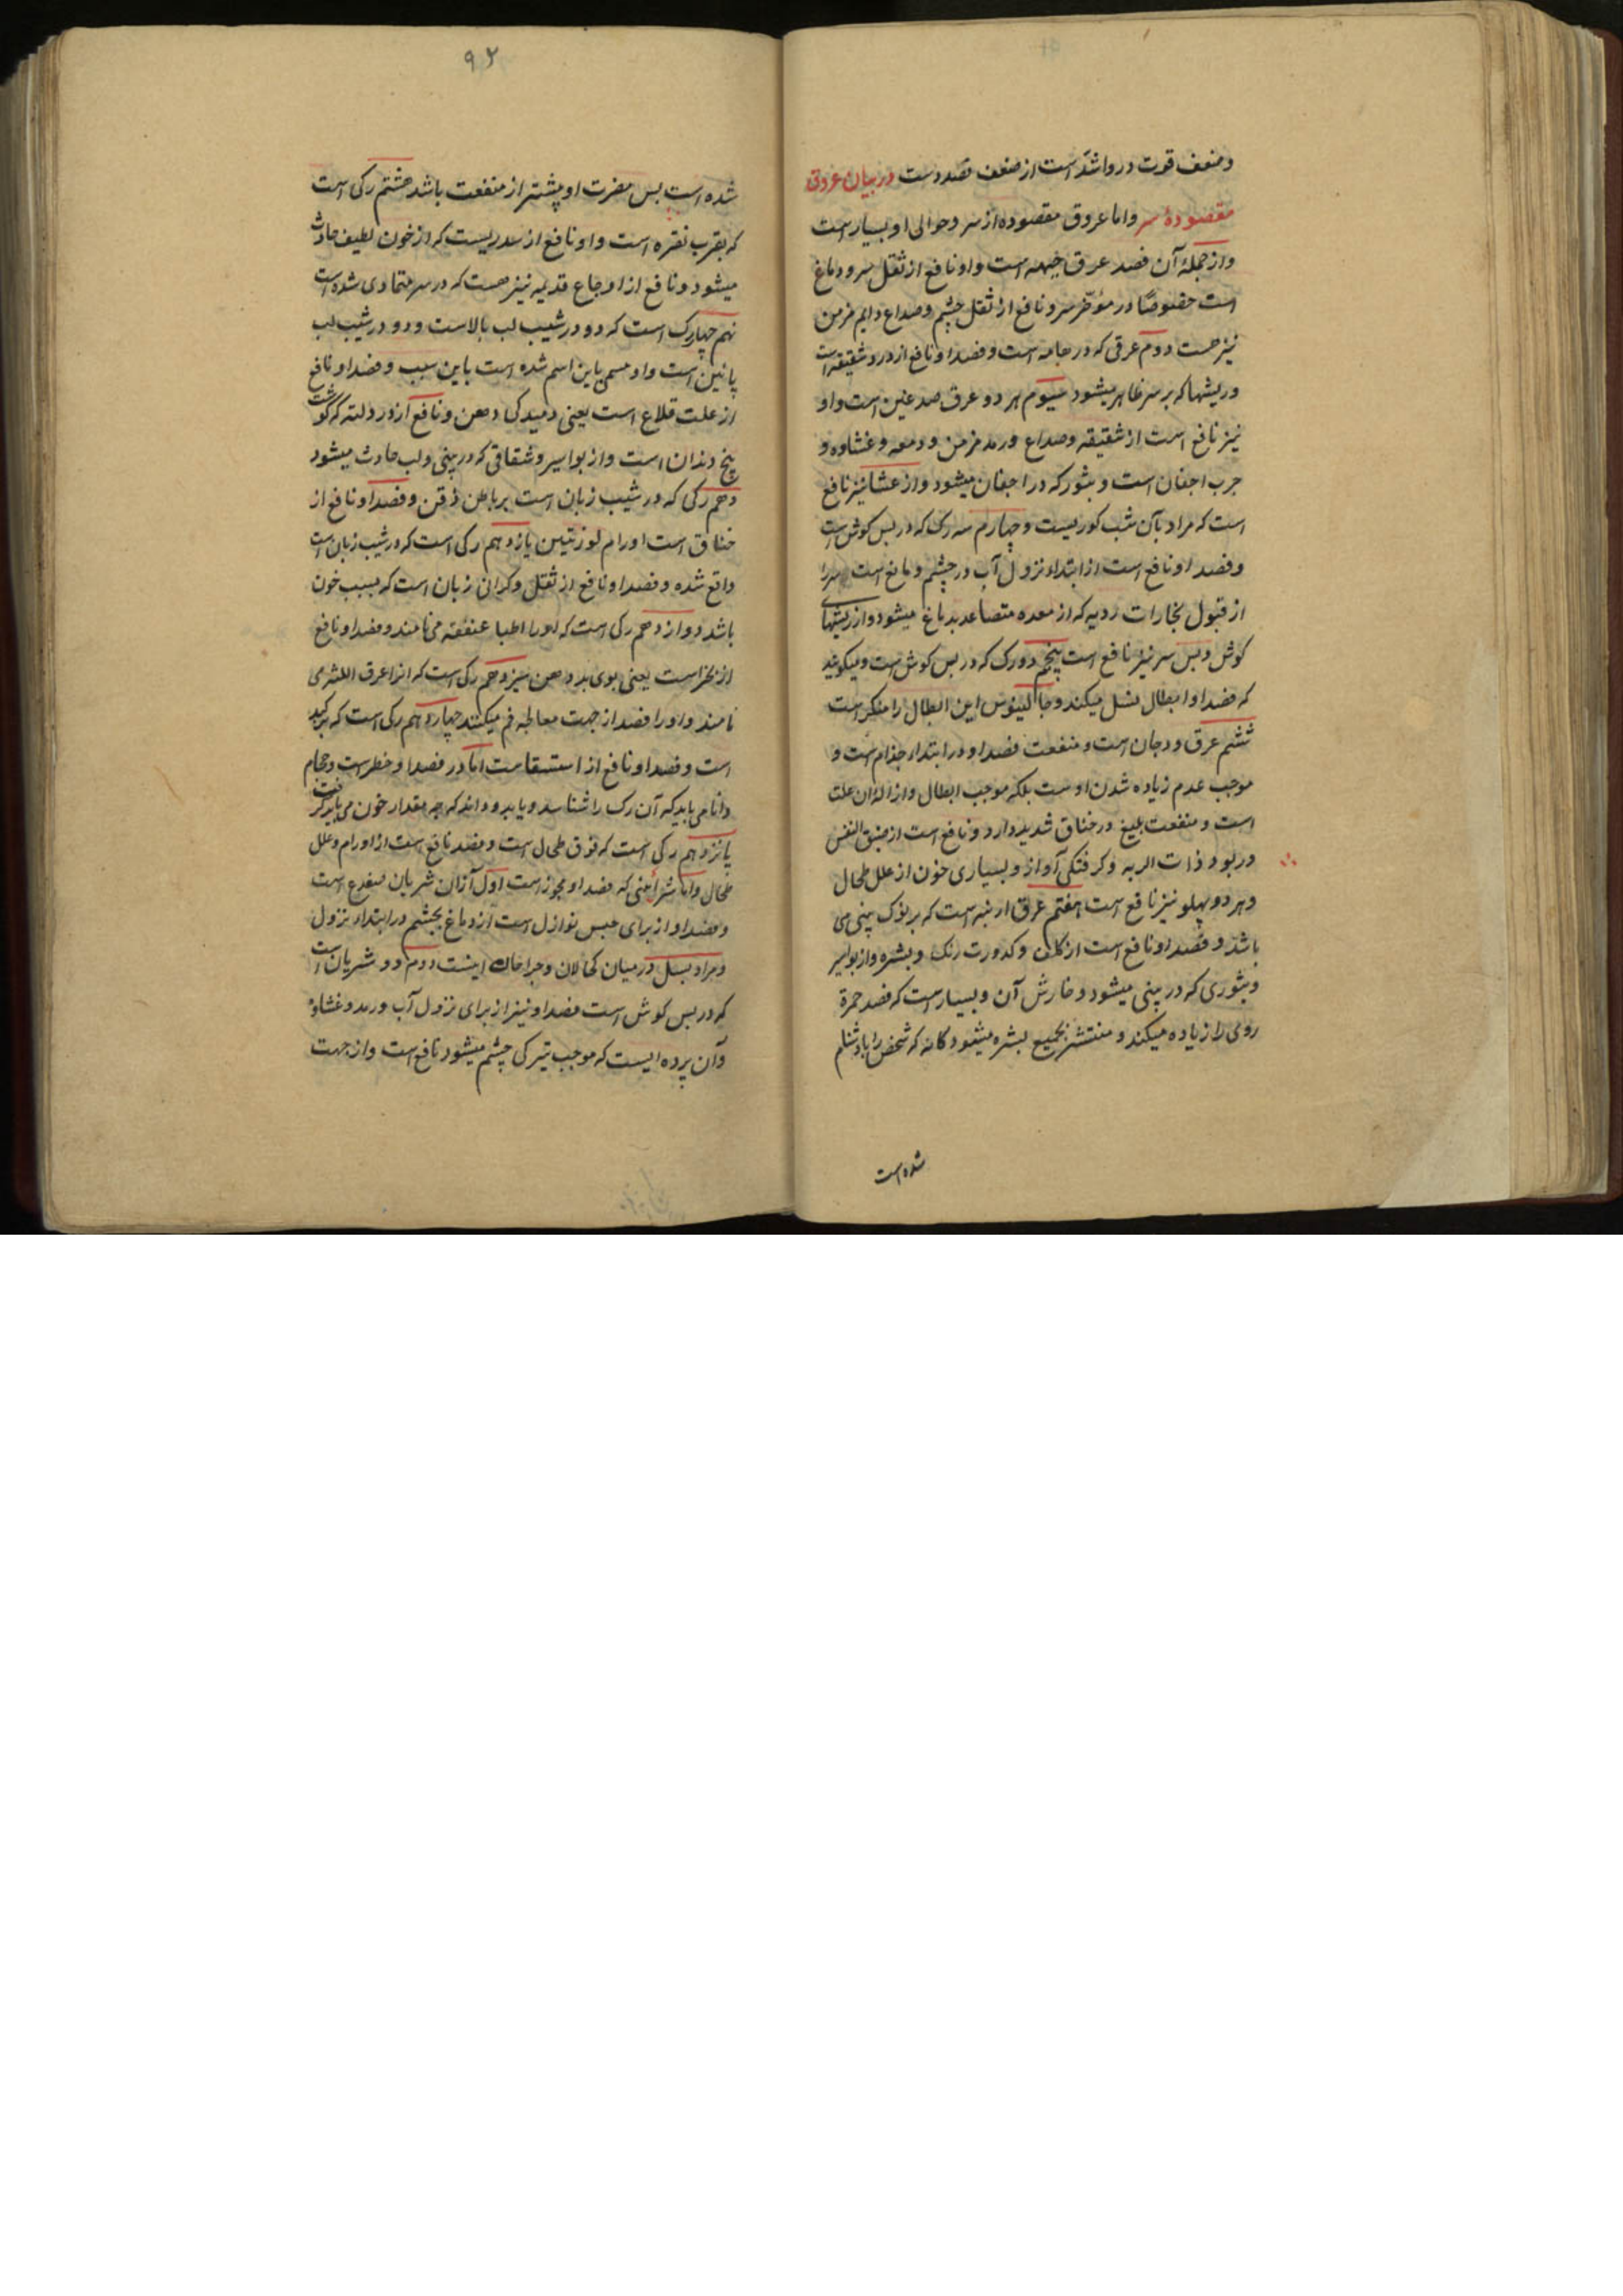 وضعف قوت درو اشد است از ضعف فصد دست در بیان عروقی
مقصودهٔ سر واما عروق مقصوده از سر وحوالی او بسیار است
واز جملهٔ آن فصد عرق جبهه است واو نافع از ثقل سر ودماغ
است خصوصًا در مؤخر سر ونافع از ثقل چشم وصداع دایم مزمن
نیز هست دوم عرقی که در هامه است وفصد او نافع از درد شقیقه است
وریشها که بر سر ظاهر میشود سیوم هر دو عرق صدغین است واو
نیز نافع است از شقیقه وصداع ورمد مزمن ودمعه وغشاوه و
جرب اجفان است وبثور که در اجفان میشود واز عشا نیز نافع
است که مراد بآن شب کوریست وچهارم سه رک که در پس کوش است
وفصد او نافع است از ابتداء نزول آب در چشم ومانع است سر را
از قبول بخارات ردیه که از معده متصاعد بدماغ میشود واز ریشهای
کوش وپس سر نیز نافع است پنجم دو رک که در پس کوش است ومیکویند
که فصد او ابطال نسل میکند وجالینوس این ابطال را منکر است
ششم عرق ودجان است ومنفعت فصد او در ابتداء جذام است و
موجب عدم زیاده شدن اوست بلکه موجب ابطال وازالهٔ ان علت
است ومنفعت بلیغ در خناق شدید دارد ونافع است از ضیق النفس
وربو وذات الریه وکرفتکی آواز وبسیاری خون از علل طحال
وهر دو پهلو نیز نافع است هفتم عرق ارنبه است که بر نوک بینی می
باشد وفصد او نافع است از کلف وکدورت رنک وبشره واز بواسیر
وبثوری که در بینی میشود وخارش آن وبسیار است که فصد حمرة
روی را زیاده میکند ومنتشر بجمیع بشره میشود کانه که شخص را بادشنام
شده است
۹۲
شده است پس مضرت او پیشتر از منفعت باشد هشتم رکی است
که بقرب نقره است واو نافع از سدریست که از خون لطیف حادث
میشود ونافع از اوجاع قدیمه نیز هست که در سر متمادی شده است
نهم چهار رک است که دو در شیب لب بالاست ودو در شیب لب
پائین است واو مسمی باین اسم شده است باین سبب وفصد او نافع
از علت قلاع است یعنی دمیدکی دهن ونافع از درد لثه که کوشت
بیخ دندان است واز بواسیر وشقاقی که در بینی ولب حادث میشود
دهم رکی که در شیب زبان است بر باطن ذقن وفصد او نافع از
خناق است اورام لوزتین یازدهم رکی است که در شیب زبان است
واقع شده وفصد او نافع از ثقل وکرانی زبان است که بسبب خون
باشد دوازدهم رکی است که او را اطبا عنفقه می نامند وفصد او نافع
از بخر است یعنی بوی بد دهن سیزدهم رکی است که انرا عرق اللثه
نامند واو را فصد از جهت معالجه فم میکنند چهاردهم رکی است که بر کبد
است وفصد او نافع از استسقاست اما در فصد او خطر است وحجام
دانا می باید که آن رک را شناسد ویابد وداند که چه مقدار خون می باید کرفت
پانزدهم رکی است که فوق طحال است وفصد نافع است از اورام وعلل
طحال واما شرائینی که فصد او مجوز است اول آزان شریان صدغ است
وفصد او از برای حبس نوازل است از دماغ بچشم در ابتداء نزول
ومراد بسل در میان کحالان وجراحان اینست دوم دو شریان است
که در پس کوش است فصد او نیز از برای نزول آب ورمد وغشاوه
وآن پرده ایست که موجب تیرکی چشم میشود نافع است واز جهت